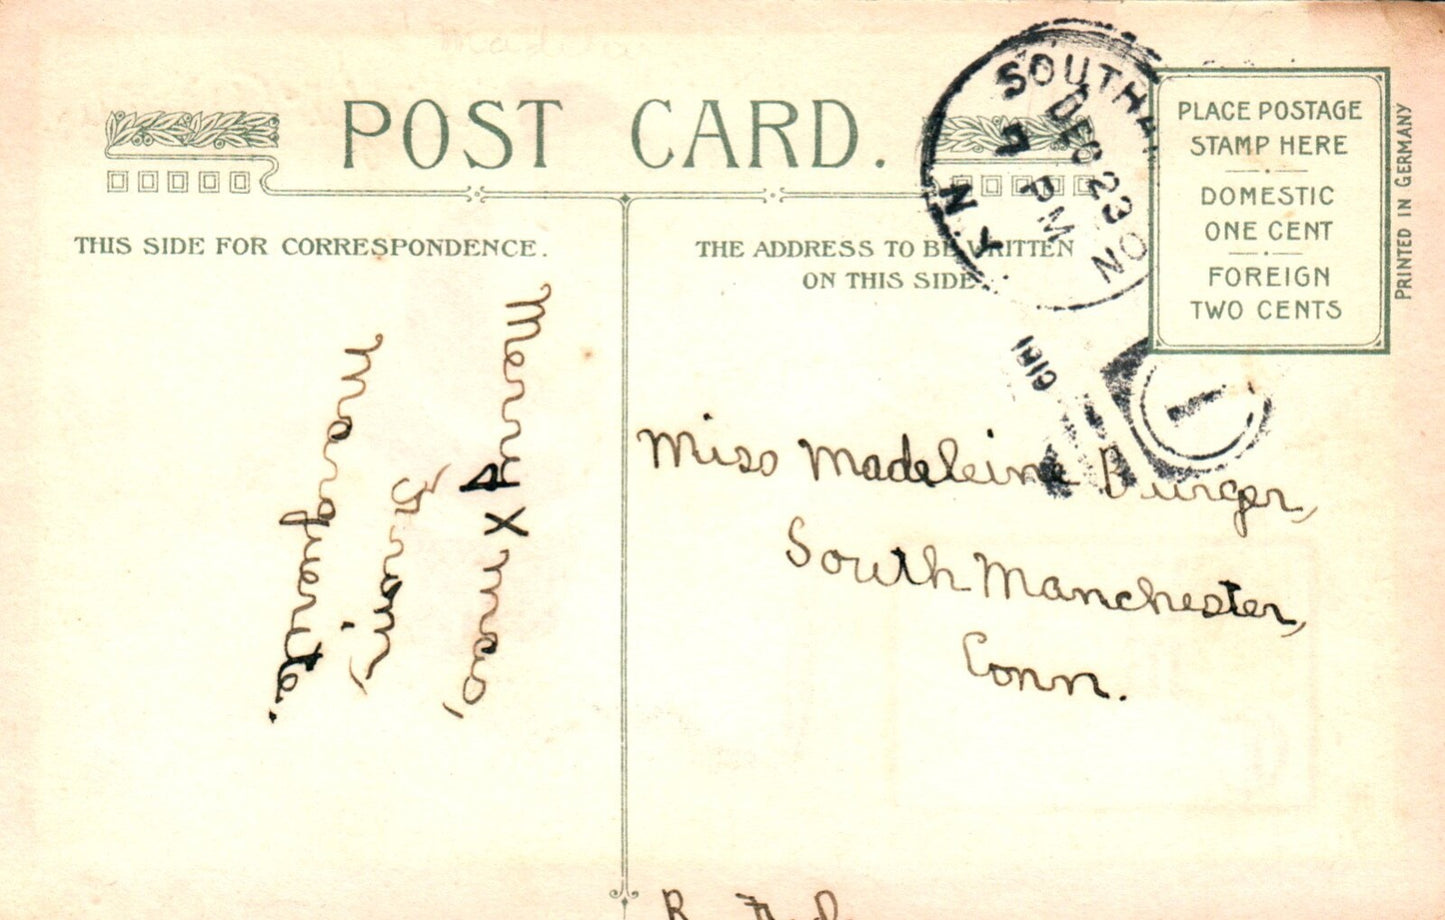 POST CARD.
THIS SIDE FOR CORRESPONDENCE.
THE ADDRESS TO BE WRITTEN
ON THIS SIDE
PLACE POSTAGE
STAMP HERE
DOMESTIC
ONE CENT
FOREIGN
TWO CENTS
PRINTED IN GERMANY
DEC 23
PM
N.Y.
1
Merry Xmas,
From,
Marguerite.
Miss Madeleine Burger,
South Manchester,
Conn.